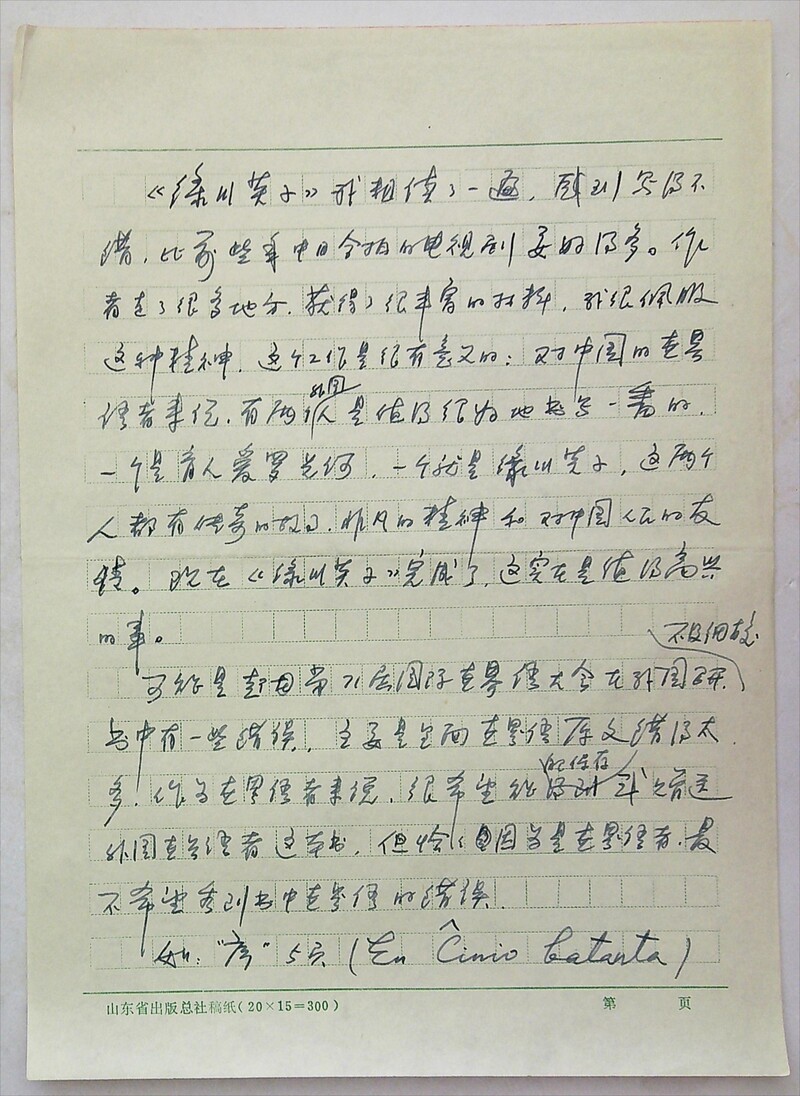 《绿川英子》我粗读了一遍，感到写得不
错，比前些年中日合拍的电视剧要好得多。作
者走了很多地方，获得了很丰富的材料，我很佩服
这种精神，这个工作是很有意义的：对中国的世界
语者来说，有两个外国人是值得很好地书写一番的，
一个是盲人爱罗先珂，一个就是绿川英子，这两个
人都有传奇的故事，非凡的精神和对中国人民的友
情。现在《绿川英子》完成了，这实在是值得高兴
的事。
不足但是
可能是赶由第71届国际世界语大会在外国
书中有一些错误，主要是里面世界语原文错得太
多，作为世界语者来说，很希望能
外国世界语者这本书，但恰恰因为是世界语者，最
不希望看到书中世界语的错误。
如："序"5页（En Ĉinio batanta）
山东省出版总社稿纸（20×15=300）
第 页